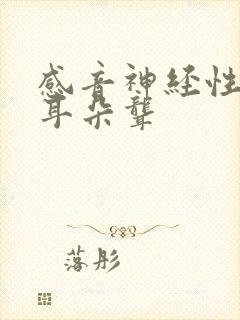 感音神经性
耳朵聋
落彤